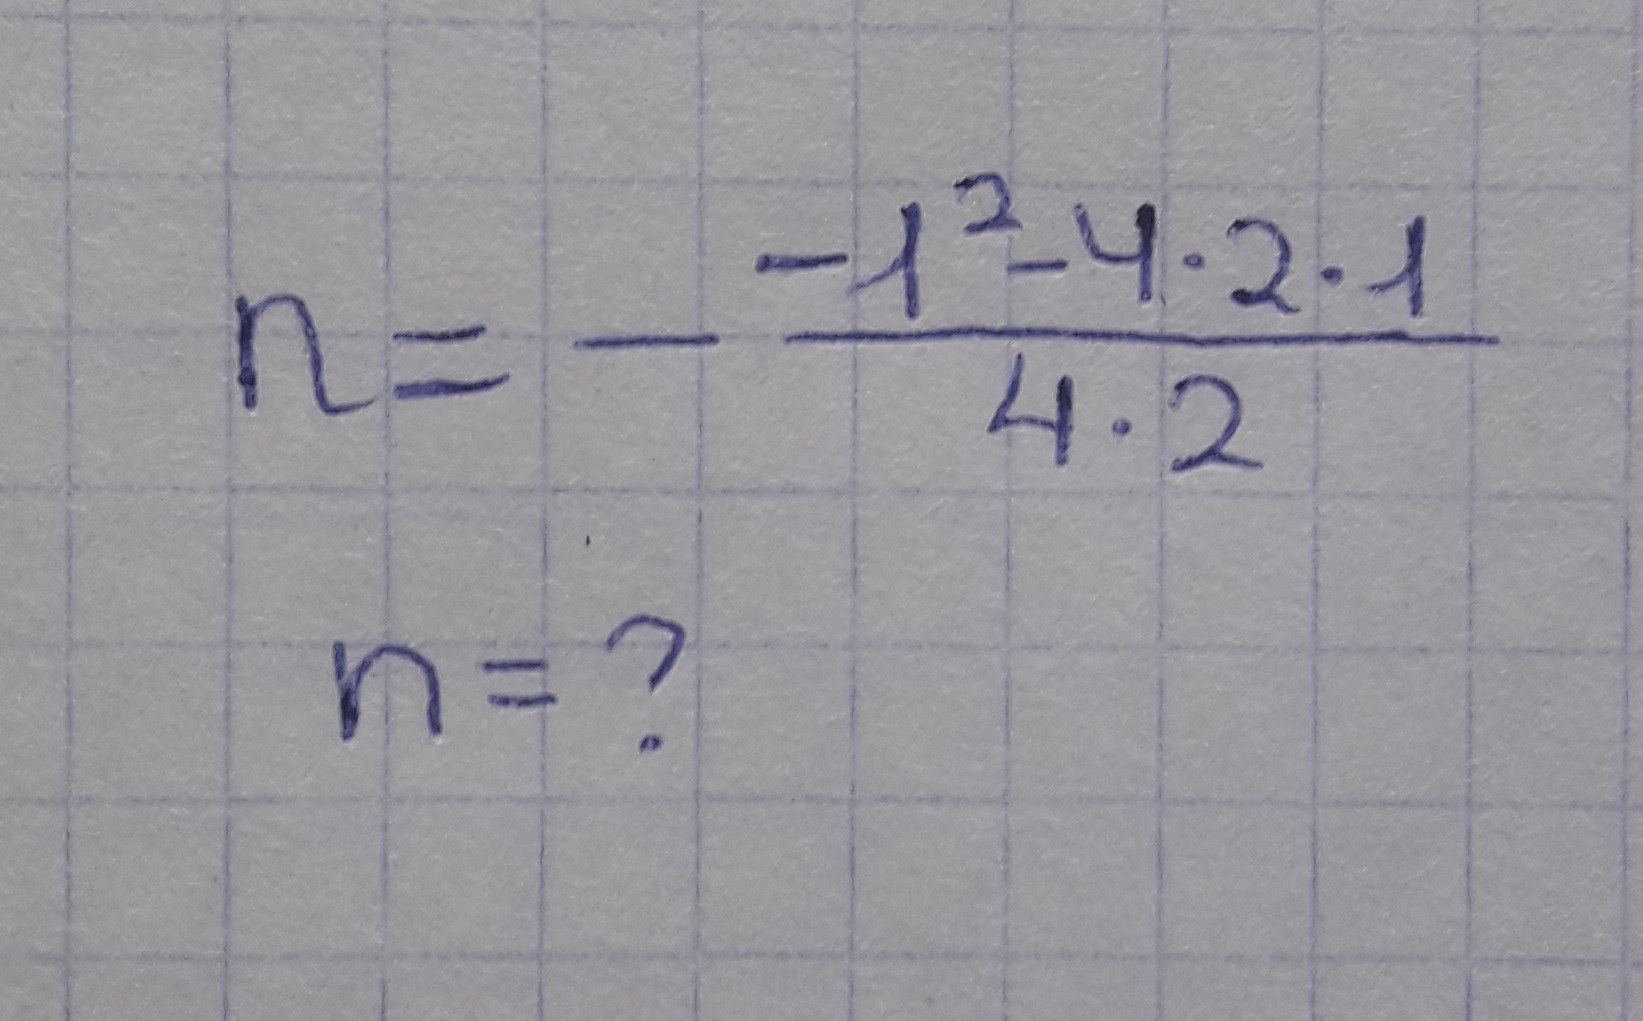 n = - \frac{-1^2 - 4 \cdot 2 \cdot 1}{4 \cdot 2}
n = ?